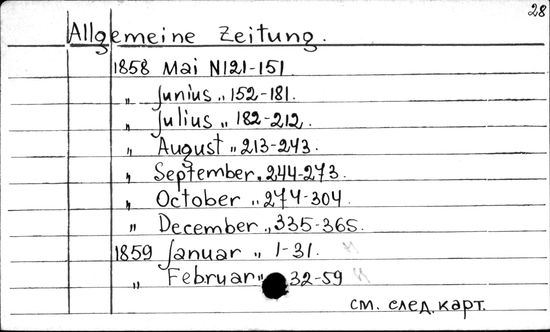 28
Allgemeine Zeitung.
1858 Mai N121-151
„ Junius „ 152-181.
„ Julius „ 182-212.
„ August „ 213-243.
„ September „ 244-273.
„ October „ 274-304.
„ December „ 335-365.
1859 Januar „ 1-31.
„ Februar „ 32-59
см. след. карт.